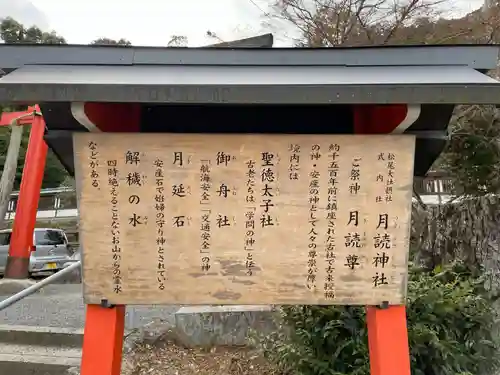 松尾大社摂社
式内社
月読神社
ご祭神　月読尊
約千五百年前に鎮座された古社で古来授福
の神・安産の神として人々の尊崇が厚い。
境内には
聖徳太子社
古老たちは「学問の神」と伝う
御舟社
「航海安全」「交通安全」の神
月延石
安産石で始婦の守り神とされている
解穢の水
四時絶えることないお山からの霊水
などがある。